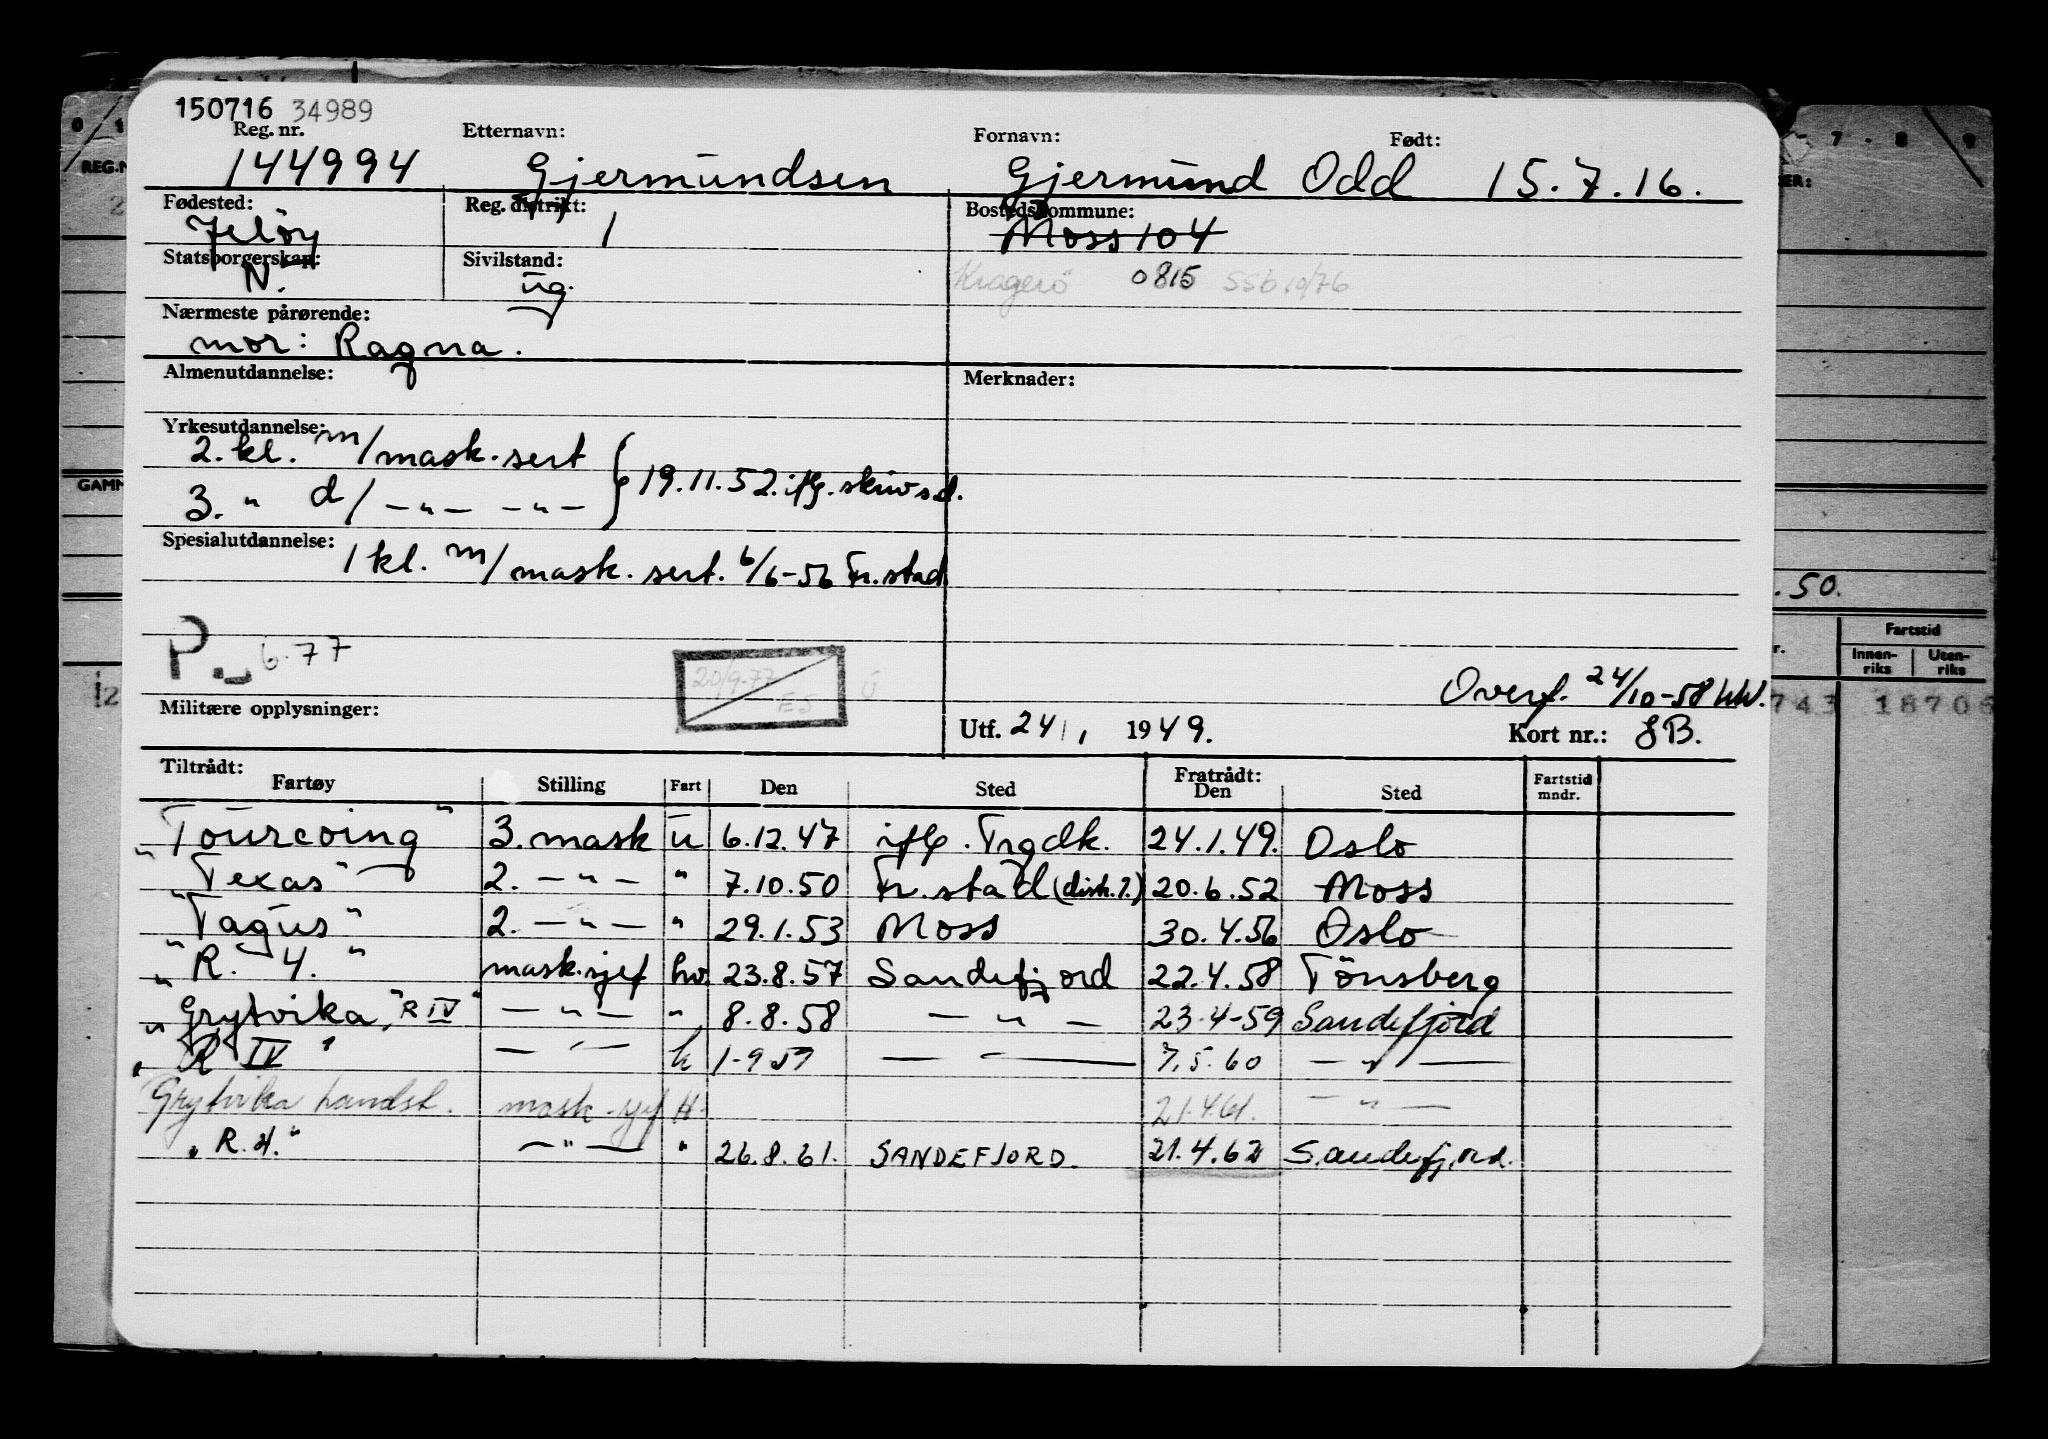 150716 34989
Reg. nr. Etternavn: Fornavn: Født:
144994 Gjermundsen Gjermund Odd 15.7.16.
Fødested: Reg. distrikt: Bostedskommune:
Jeløy 1 Moss 104
Statsborgerskap: Sivilstand:
N. ug. Kragerö 0815 SSb 10/76
Nærmeste pårørende:
mor: Ragna.
Almenutdannelse: Merknader:
Yrkesutdannelse:
2. kl. m/mask. sert } 19.11.52. iflg. skiv s.d.
3. " d/ - " - - " -
Spesialutdannelse:
1 kl. m/mask. sert. 6/6-56 Fr.stad
P. 6.77
20/9-77 ES
Overf. 24/10-58 hW.
Militære opplysninger: Utf. 24/1, 1949. Kort nr.: 8B.
Tiltrådt: Fratrådt:
Fartøy Stilling Fart Den Sted Den Sted Fartstid mndr.
"Tourcoing" 3. mask u 6.12.47 iflg. Trgdk. 24.1.49. Oslo
"Texas" 2. - " - " 7.10.50 Fr.stad (disk.7.) 20.6.52 Moss
"Tagus" 2. - " - " 29.1.53 Moss 30.4.56 Oslo
"R. 4." mask.sjef hv. 23.8.57 Sandefjord 22.4.58 Tönsberg
"Grytvika, "R IV" - " - " 8.8.58 - " - 23-4-59 Sandefjord
"R IV" - " - h 1-9 59 - " - 7.5.60 - " -
Grytvika landst. mask.sjef H. 21.4.61. - " -
"R.4." - " - " 26.8.61. SANDEFJORD. 21.4.62 Sandefjord.
REG.N
GAMM
7 . 8 9
.50.
Fartstid
Innen-
riks Uten-
riks
743 18706